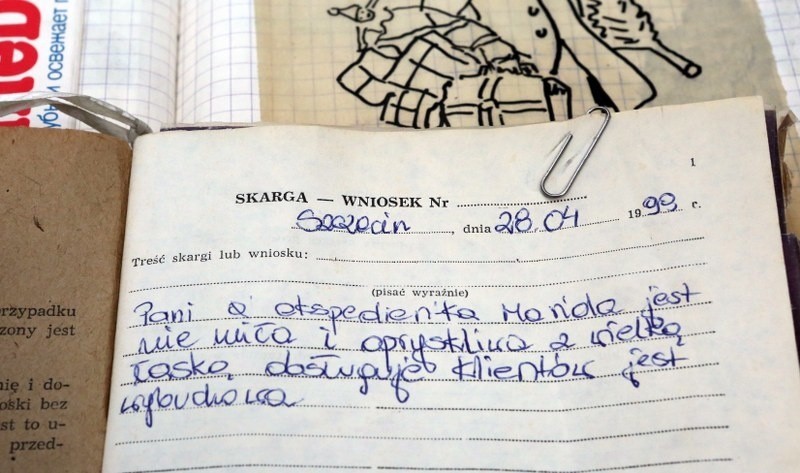 убы и освежает п
1
SKARGA — WNIOSEK Nr
Szczecin, dnia 28.04 1999 r.
Treść skargi lub wniosku:
(pisać wyraźnie)
Pani ekspedientka Mariola jest
nie miła i opryskliwa z wielką
łaską obsługuje klientów jest
wybuchowa
rzypadku
zony jest
nię i do-
ośki bez
st to u-
przed-